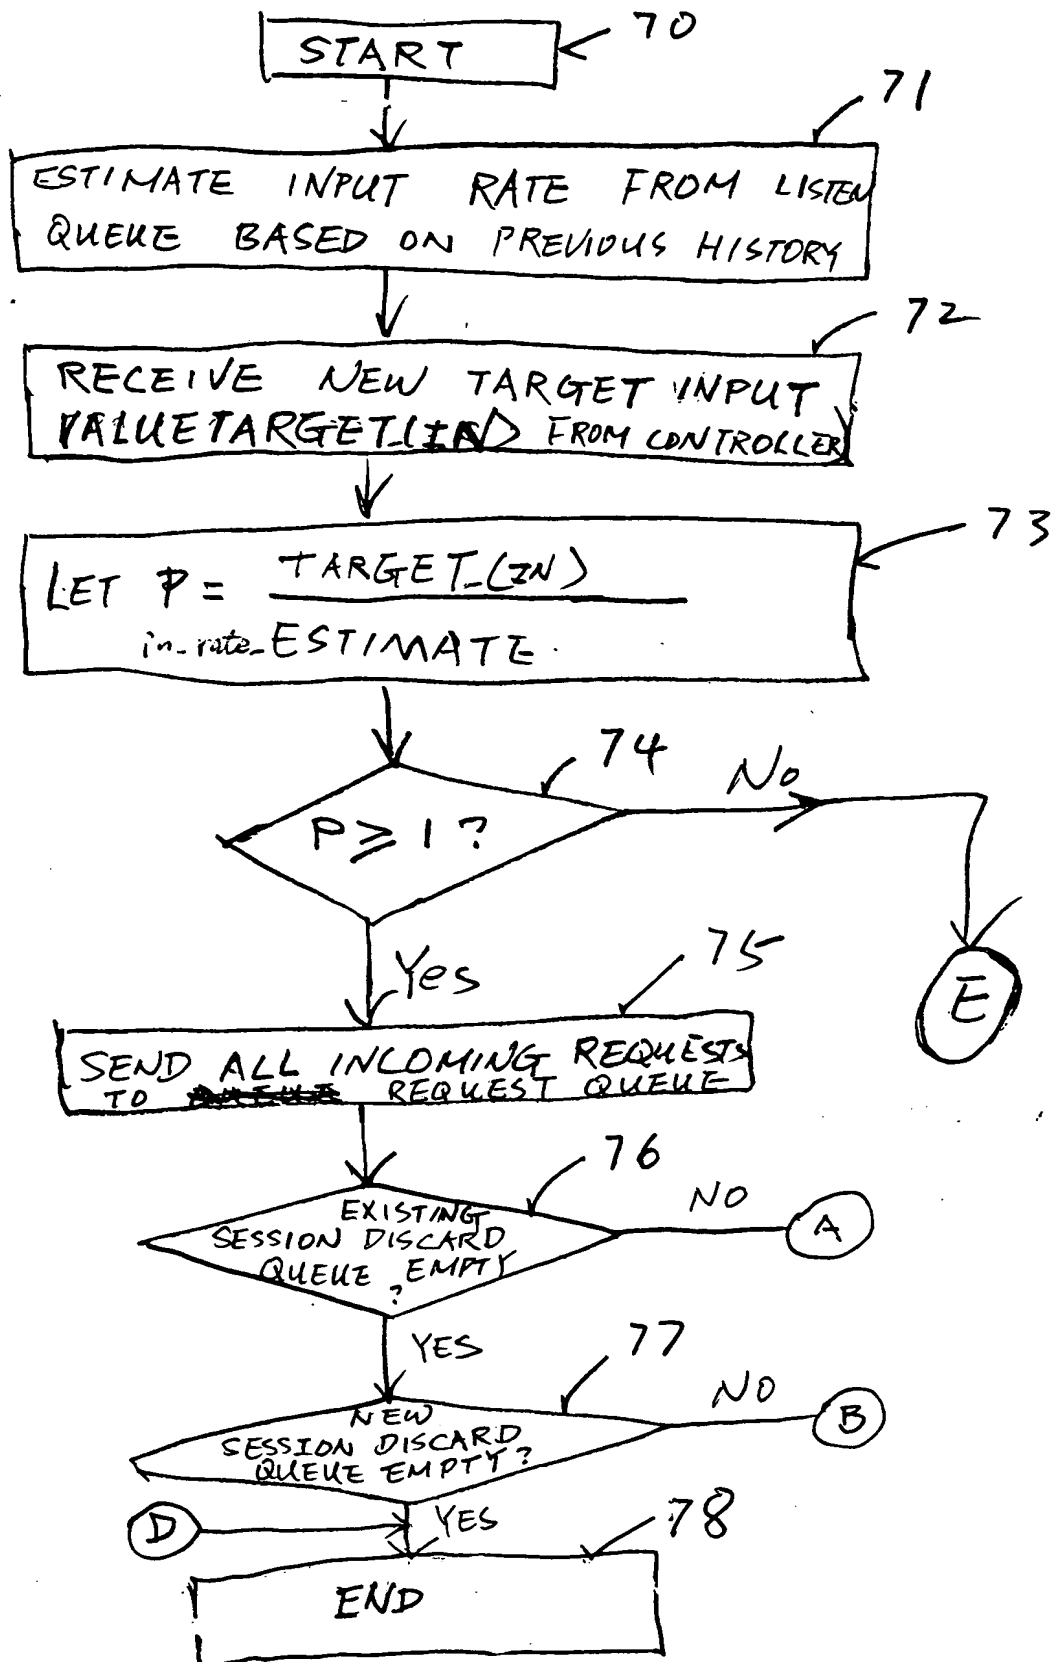 START
70
71
ESTIMATE INPUT RATE FROM LISTEN
QUEUE BASED ON PREVIOUS HISTORY
72
RECEIVE NEW TARGET INPUT
VALUE TARGET_(IN) FROM CONTROLLER
73
LET P = TARGET_(IN)
in_rate_ESTIMATE
74
No
P ≥ 1 ?
Yes
75
E
SEND ALL INCOMING REQUESTS
TO REQUEST QUEUE
76
NO
A
EXISTING
SESSION DISCARD
QUEUE EMPTY
?
YES
77
NO
B
NEW
SESSION DISCARD
QUEUE EMPTY?
D
YES
78
END